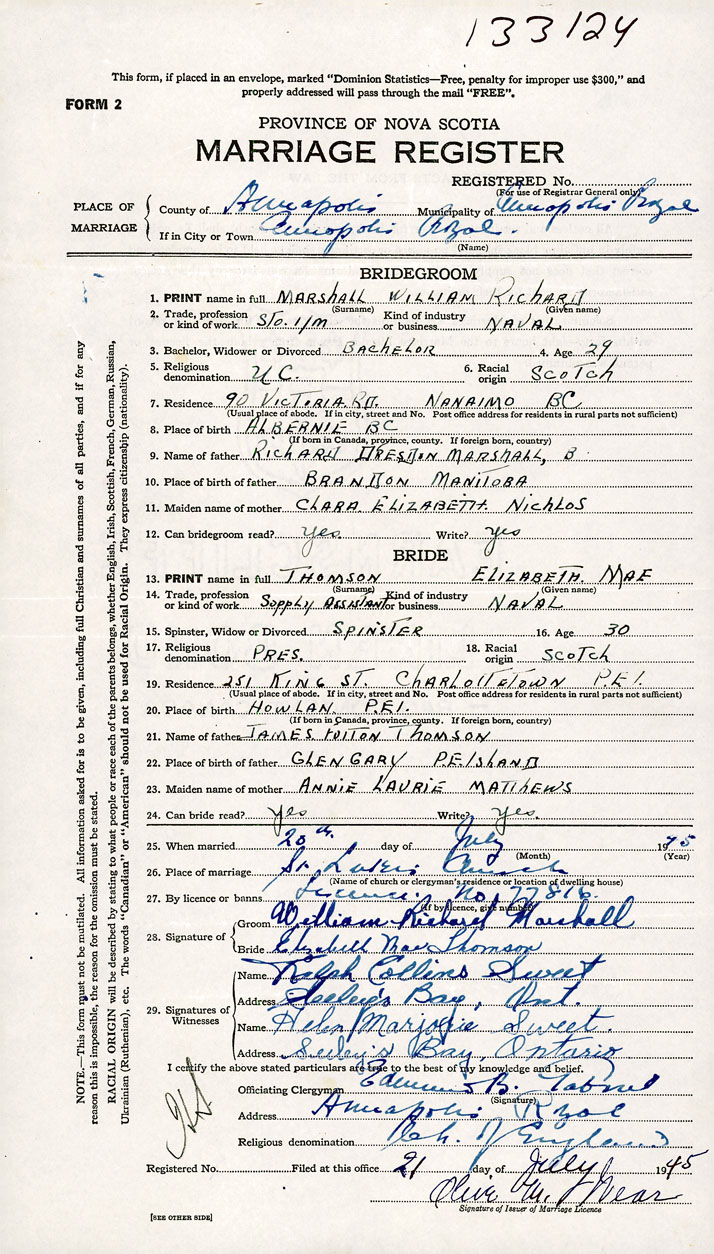 133124
This form, if placed in an envelope, marked "Dominion Statistics—Free, penalty for improper use $300," and
properly addressed will pass through the mail "FREE".
FORM 2
PROVINCE OF NOVA SCOTIA
MARRIAGE REGISTER
REGISTERED No.
(For use of Registrar General only)
PLACE OF MARRIAGE
County of Annapolis Municipality of Annapolis Royal
If in City or Town Annapolis Royal.
(Name)
BRIDEGROOM
1. PRINT name in full MARSHALL WILLIAM RICHARD
(Surname) (Given name)
2. Trade, profession or kind of work STO. 1/M Kind of industry or business NAVAL
3. Bachelor, Widower or Divorced BACHELOR 4. Age 29
5. Religious denomination U.C. 6. Racial origin SCOTCH
7. Residence 90 VICTORIA RD. NANAIMO BC
(Usual place of abode. If in city, street and No. Post office address for residents in rural parts not sufficient)
8. Place of birth ALBERNIE BC
(If born in Canada, province, county. If foreign born, country)
9. Name of father RICHARD MARSHALL, B
10. Place of birth of father BRANDON MANITOBA
11. Maiden name of mother CLARA ELIZABETH NICHLOS
12. Can bridegroom read? yes. Write? yes
BRIDE
13. PRINT name in full THOMSON ELIZABETH MAE
(Surname) (Given name)
14. Trade, profession or kind of work Supply ASSISTANT Kind of industry or business NAVAL
15. Spinster, Widow or Divorced SPINSTER 16. Age 30
17. Religious denomination PRES. 18. Racial origin SCOTCH
19. Residence 251 KING ST. CHARLOTTETOWN P.E.I.
(Usual place of abode. If in city, street and No. Post office address for residents in rural parts not sufficient)
20. Place of birth HOWLAN. P.E.I.
(If born in Canada, province, county. If foreign born, country)
21. Name of father JAMES THOMSON
22. Place of birth of father GLENGARY P.E. ISLAND
23. Maiden name of mother ANNIE LAURIE MATTHEWS
24. Can bride read? yes Write? yes.
25. When married 20th. day of July 1945
(Month) (Year)
26. Place of marriage St. Luke's Church
(Name of church or clergyman's residence or location of dwelling house)
27. By licence or banns Licence. No. 77816.
(If by licence, give number)
28. Signature of
Groom William Richard Marshall
Bride Elizabeth Mae Thomson
29. Signatures of Witnesses
Name Ralph Collins Sweet
Address Seeley's Bay, Ont.
Name Helen Marjorie Sweet.
Address Seeley's Bay, Ontario
I certify the above stated particulars are true to the best of my knowledge and belief.
Officiating Clergyman B.
(Signature)
Address Annapolis Royal
Religious denomination Ch. of England
Registered No. Filed at this office 21 day of July 1945
Olive M.
Signature of Issuer of Marriage Licence
[SEE OTHER SIDE]
NOTE.—This form must not be mutilated. All information asked for is to be given, including full Christian and surnames of all parties, and if for any
reason this is impossible, the reason for the omission must be stated.
RACIAL ORIGIN will be described by stating to what people or race each of the parents belongs, whether English, Irish, Scottish, French, German, Russian,
Ukrainian (Ruthenian), etc. The words "Canadian" or "American" should not be used for Racial Origin. They express citizenship (nationality).